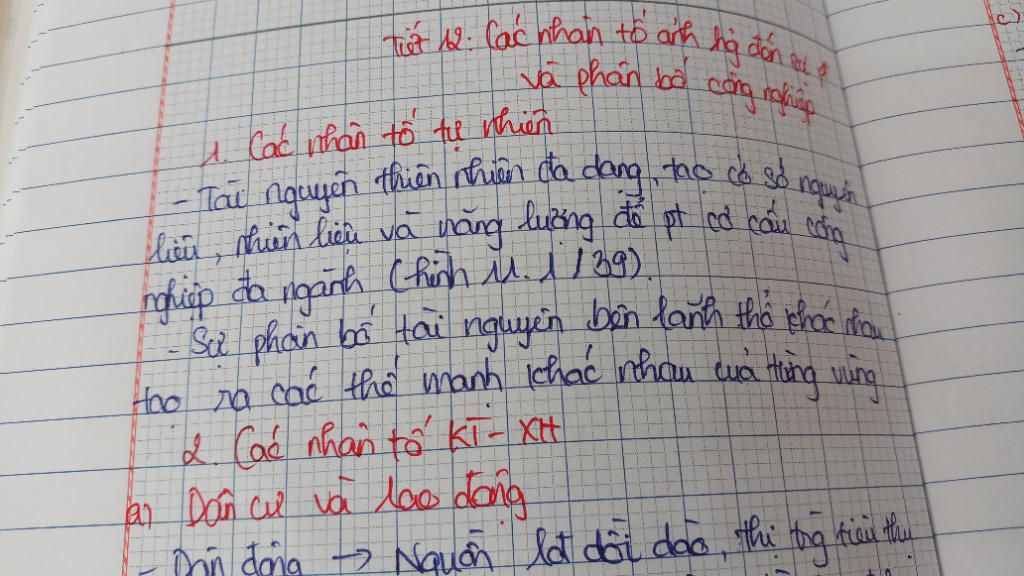 Tiết 12: Các nhân tố ảnh hg đến sự p
và phân bố công nghiệp
1. Các nhân tố tự nhiên
- Tài nguyên thiên nhiên đa dạng, tạo cơ sở nguyên
liệu, nhiên liệu và năng lượng để pt cơ cấu công
nghiệp đa ngành (hình 11.1/39).
- Sự phân bố tài nguyên bên lãnh thổ khác nhau
tạo ra các thế mạnh khác nhau của từng vùng
2. Các nhân tố KT - XH
a) Dân cư và lao động
- Dân đông → Nguồn lđ dồi dào, thị trg tiêu thụ
c)